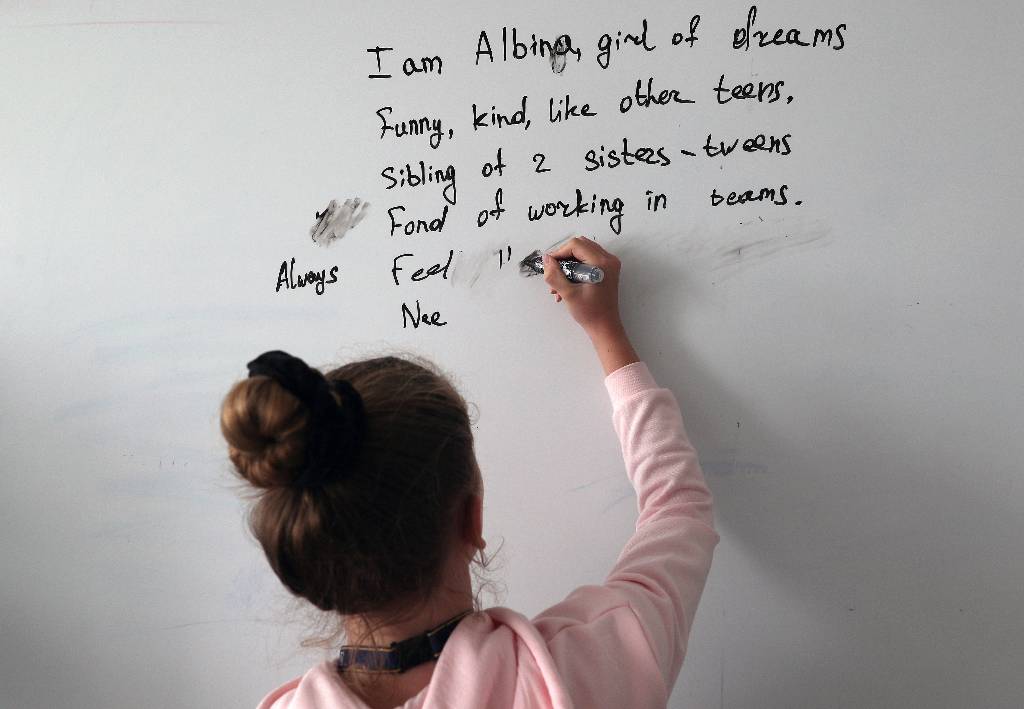 I am Albina, girl of dreams
Funny, kind, like other teens.
Sibling of 2 sisters - tweens
Fond of working in teams.
Always Feel
Nee